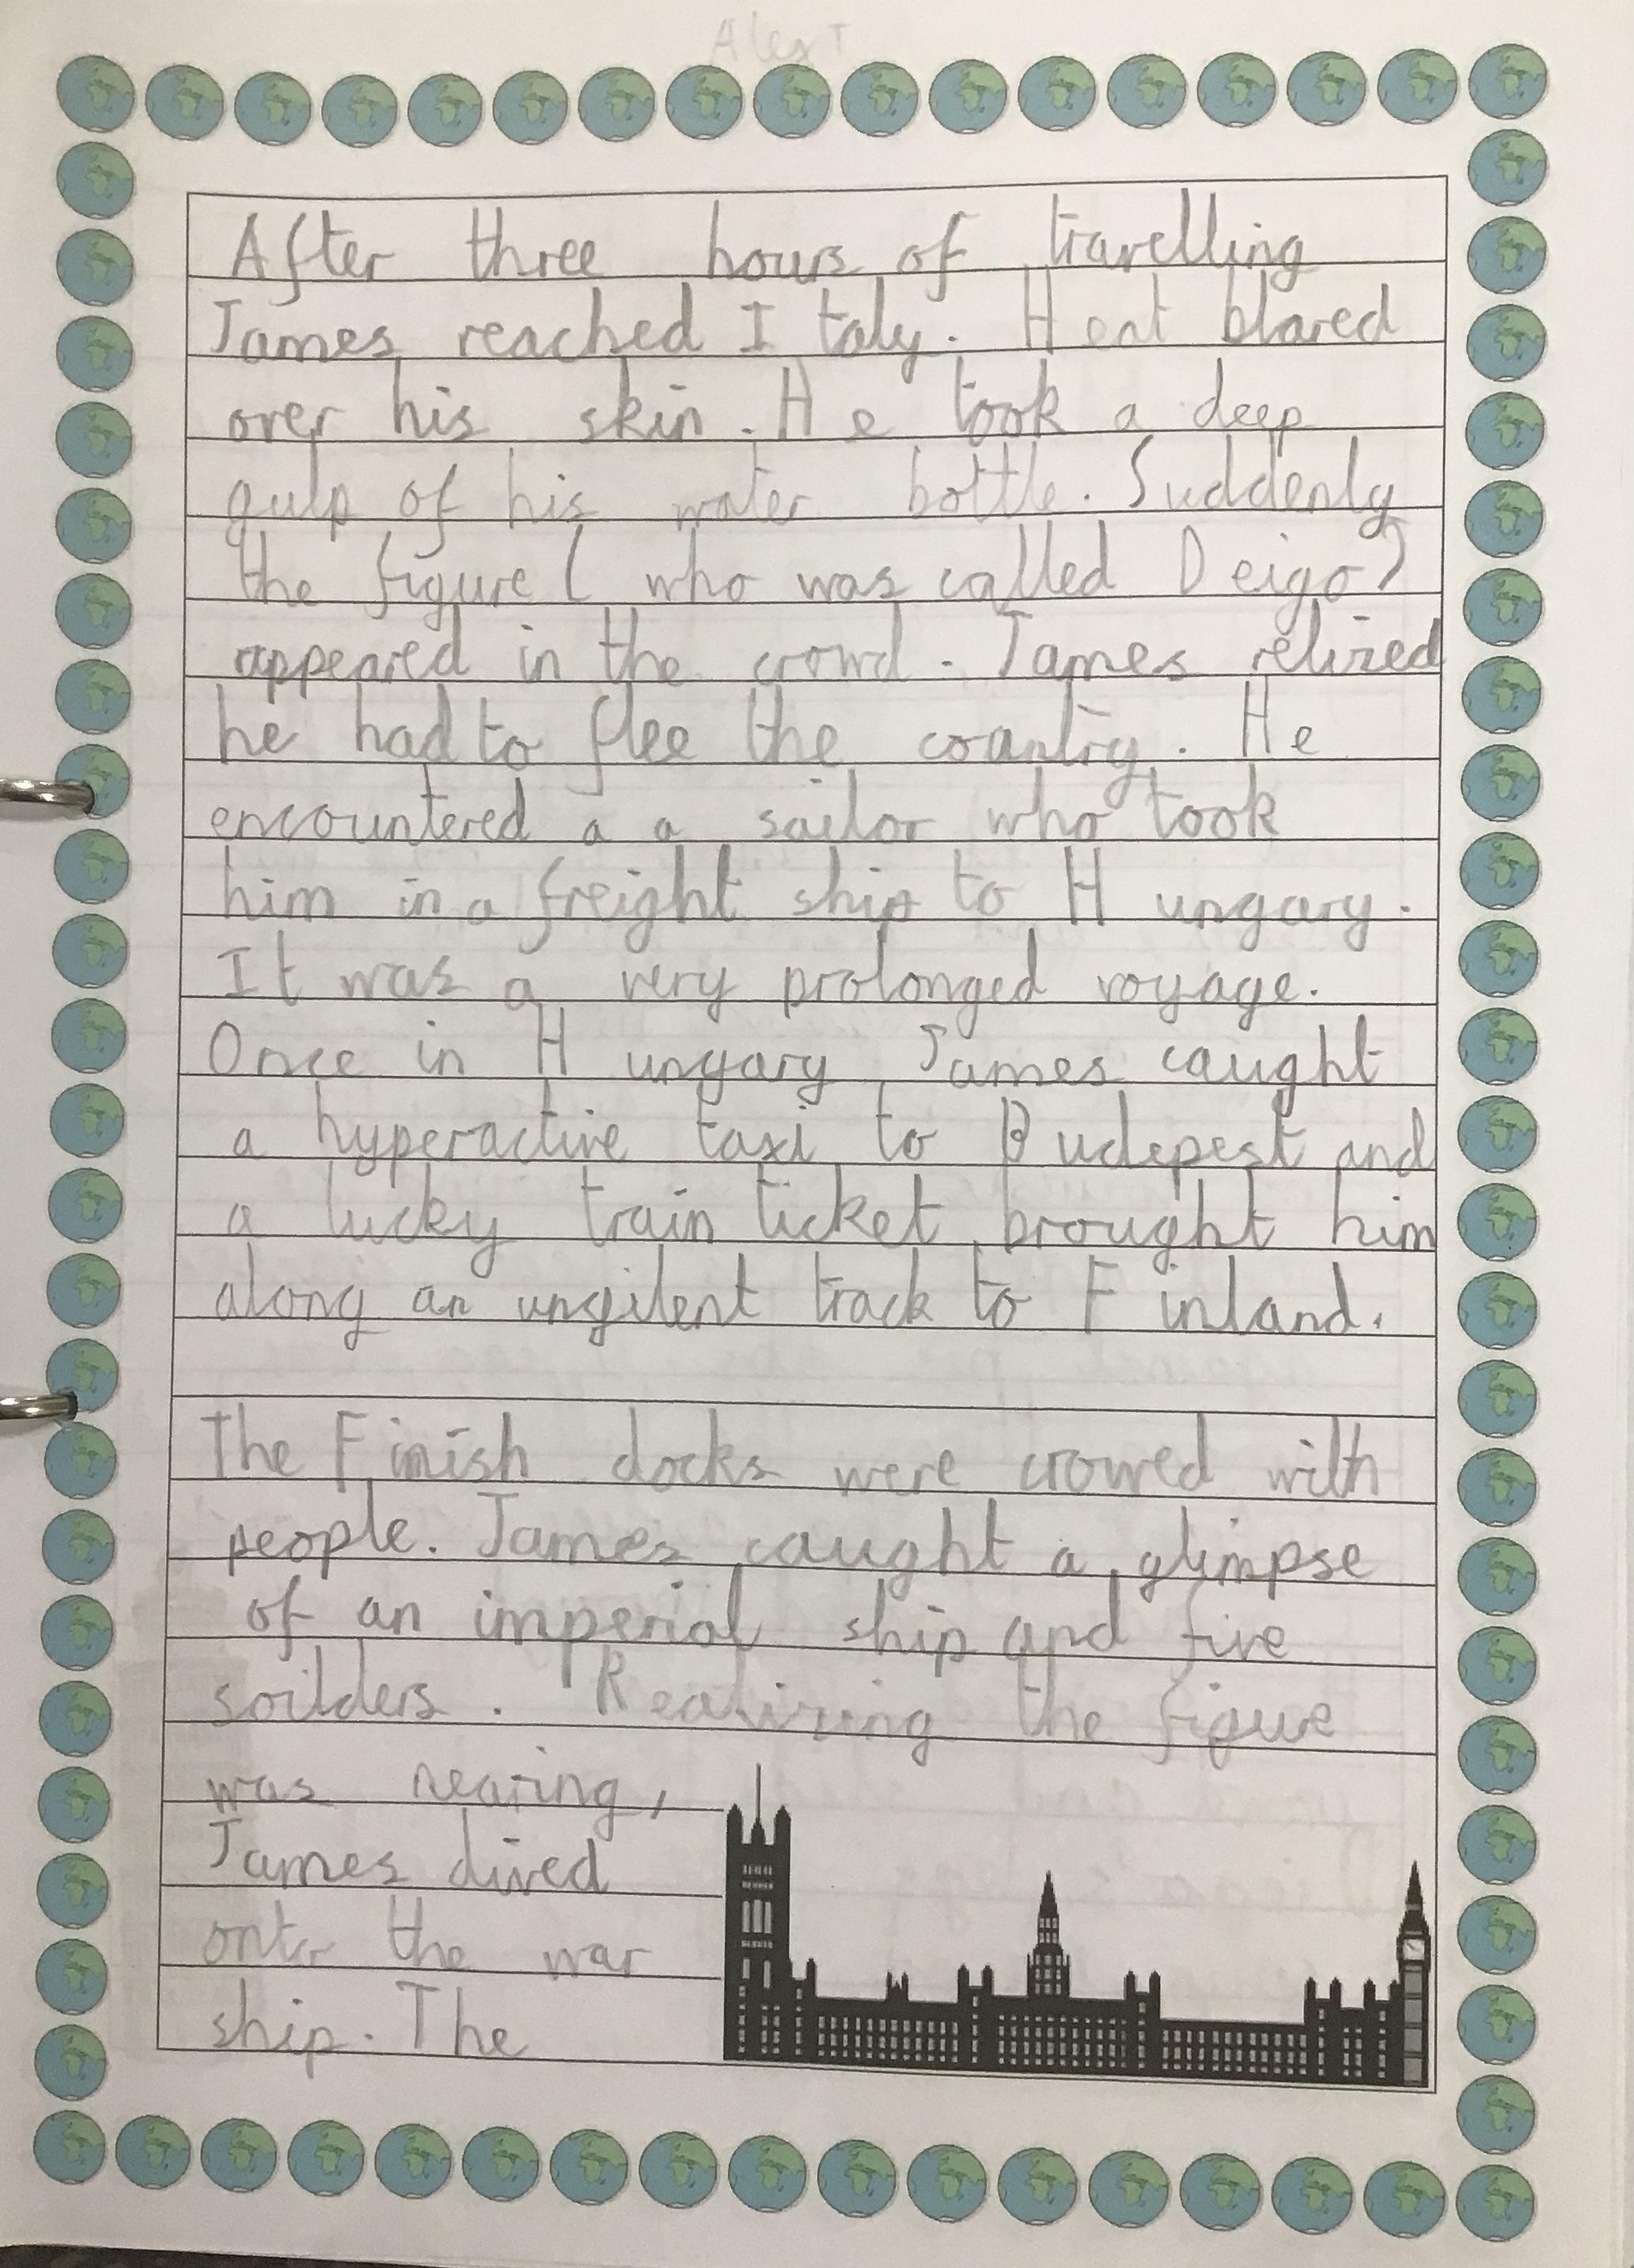 Alex T
After three hours of travelling
James reached Italy. Heat blared
over his skin. He took a deep
gulp of his water bottle. Suddenly
the figure (who was called Deigo)
appeared in the crowd. James relized
he had to flee the country. He
encountered a a sailor who took
him in a freight ship to Hungary.
It was a very prolonged voyage.
Once in Hungary James caught
a hyperactive taxi to Budepest and
a lucky train ticket brought him
along an track to Finland.
The Finish docks were crowed with
people. James caught a glimpse
of an imperial ship and five
soilders. Realizing the figure
was nearing,
James dived
onto the war
ship. The